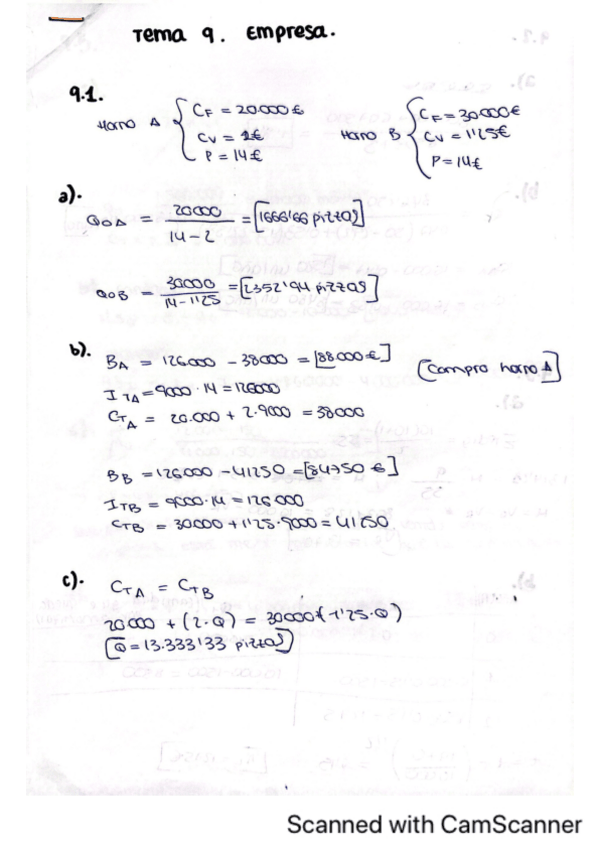 Tema 9. Empresa.
9.1.
Horno A { CF = 20000€
CV = 2€
P = 14€
Horno B { CF = 30000€
CV = 1'25€
P = 14€
a).
Q0A = 20000 / 14 - 2 = [1666'66 pizzas]
Q0B = 30000 / 14 - 1'25 = [2352'94 pizzas]
b).
BA = 126000 - 38000 = [88000€]
[Compro horno A]
ITA = 9000 · 14 = 126000
CTA = 20.000 + 2·9000 = 38000
BB = 126000 - 41250 = [84750 €]
ITB = 9000·14 = 126000
CTB = 30000 + 1'25·9000 = 41250
c).
CTA = CTB
20000 + (2·Q) = 30000 + (1'25·Q)
[Q = 13.333'33 pizzas]
Scanned with CamScanner